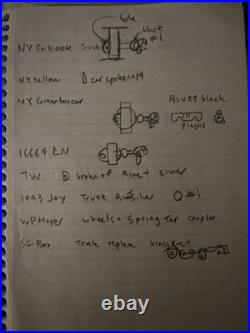 hole
NY Caboose Truck black #1
NY Yellow D car spoke
NY Green boxcar Rivet black
plastic
16664 LN
TW broken of Rivet silver
1993 Joy Truck Rivet Silver #1
WP Hoper wheels + Spring for coupler
SG Box Truck replace